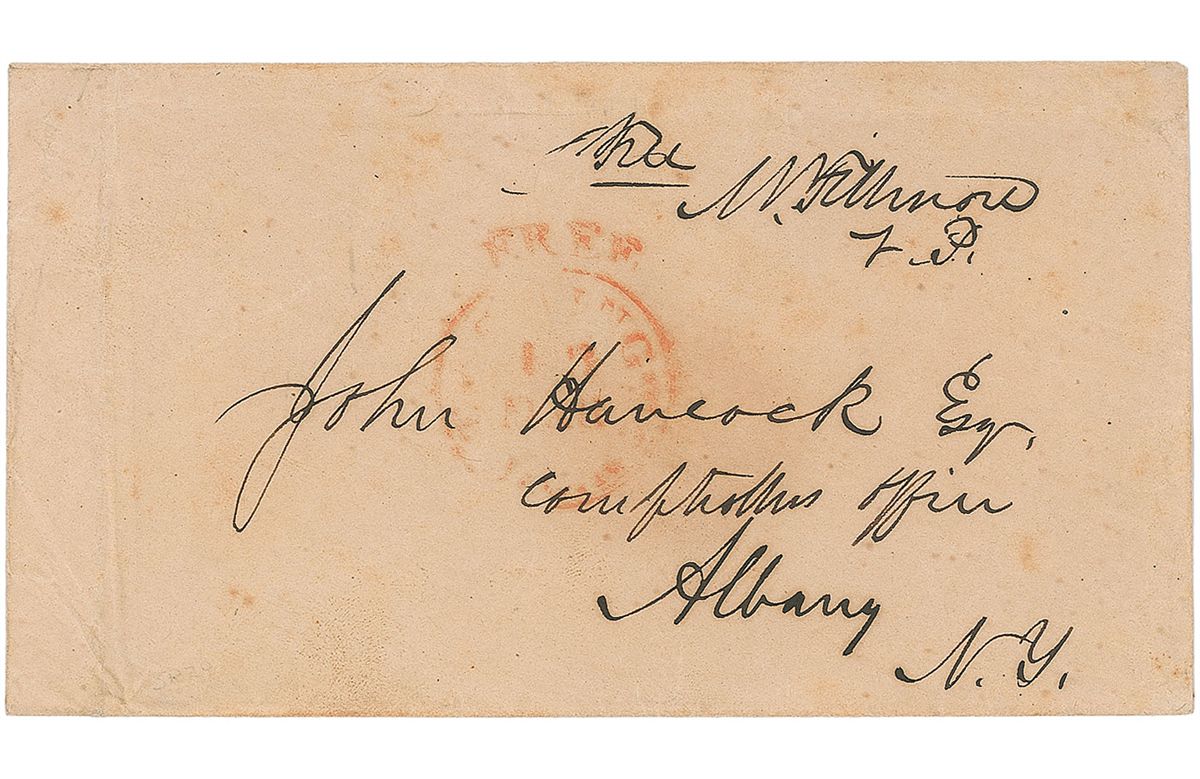 Free
M. Fillmore
V. P.
FREE
John Hancock Esq.
Comptrollers office
Albany
N. Y.